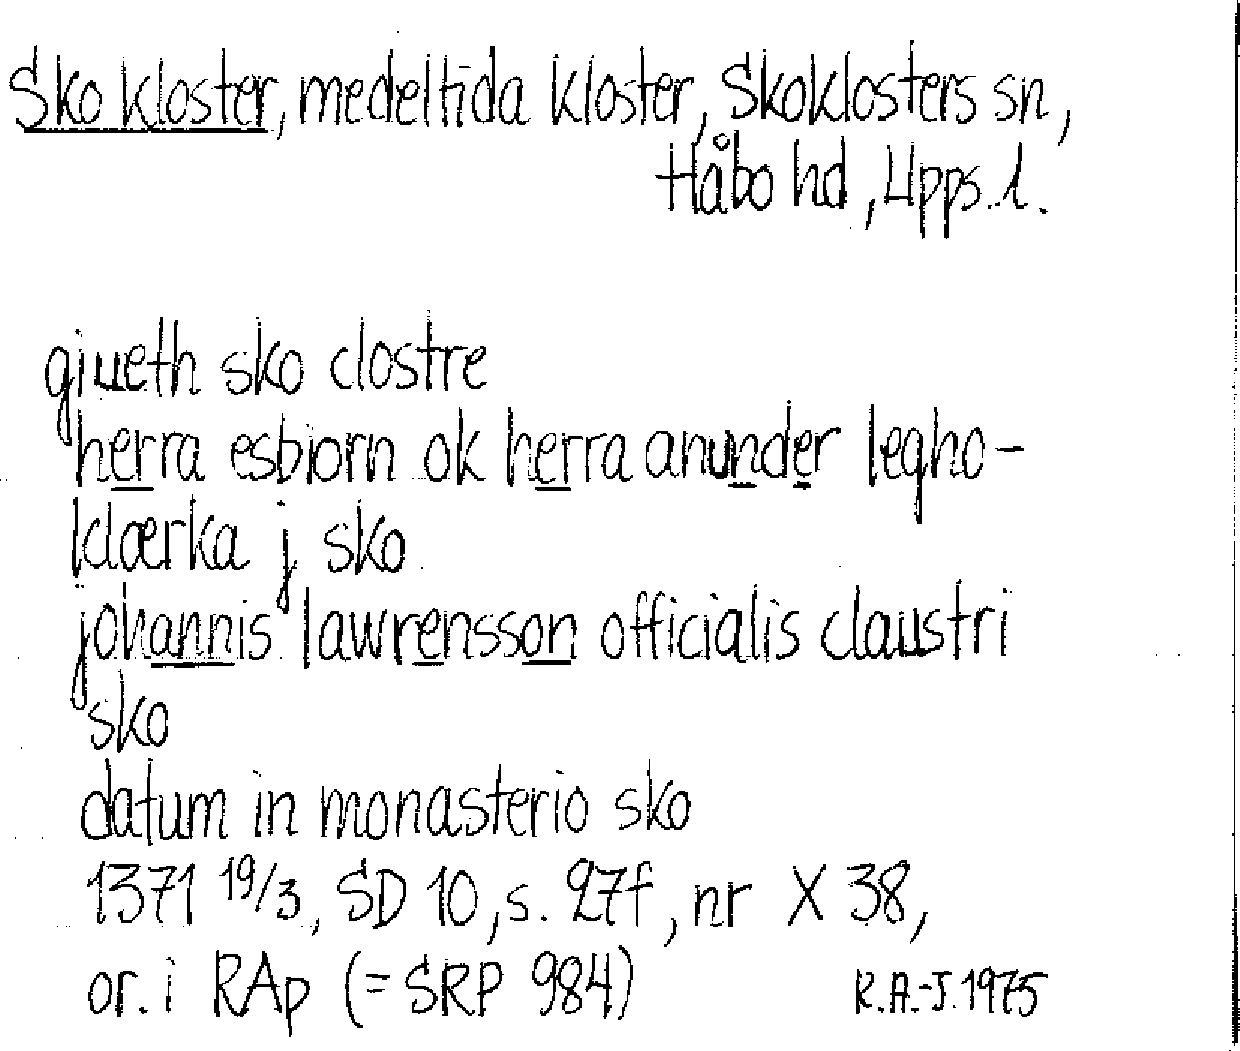 Sko kloster, medeltida kloster, Skoklosters sn,
Håbo hd, Upps. l.
giueth sko clostre
herra esbiorn ok herra anunder legho-
klærka j sko
johannis lawrensson officialis claustri
sko
datum in monasterio sko
1371 19/3, SD 10, s. 27f, nr X 38,
or. i RAp (= SRP 984)
R.A.-J. 1975